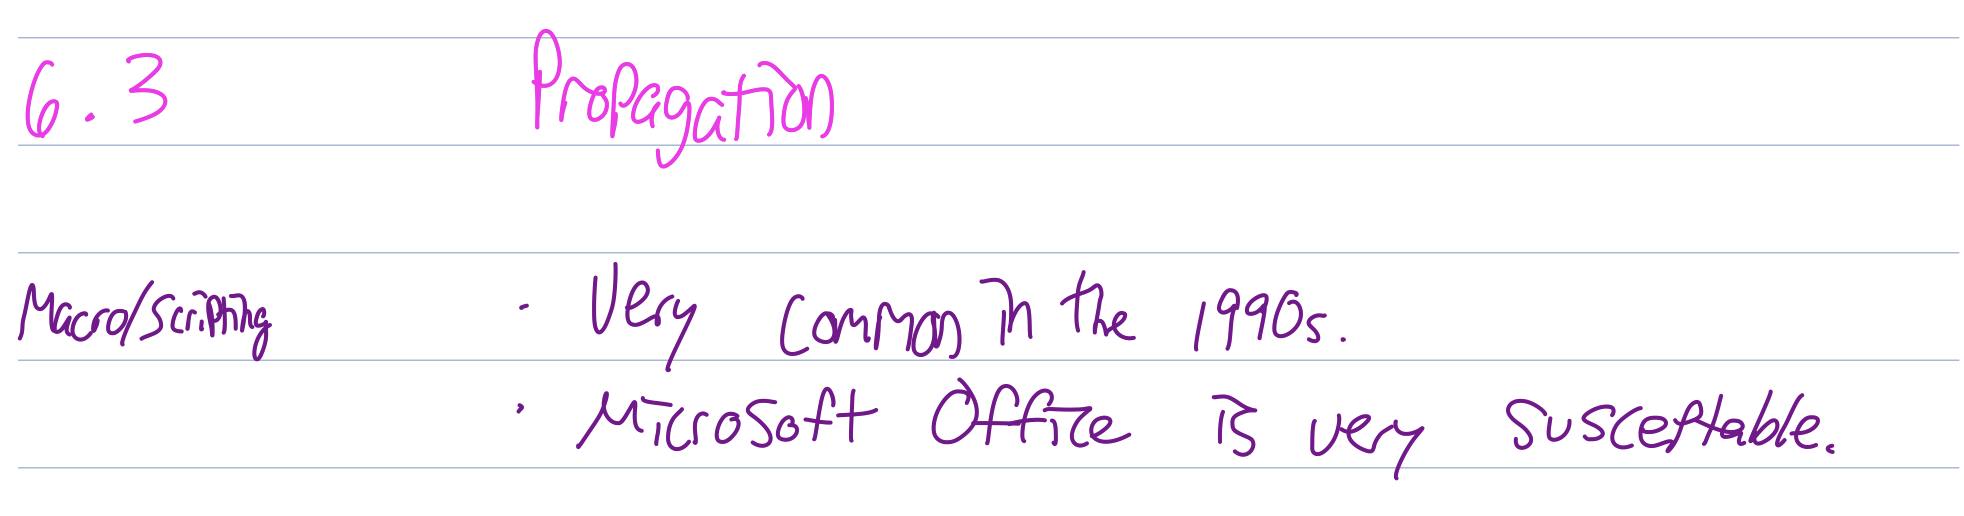 6.3 Propagation
Macro/Scripting · Very common in the 1990s.
· Microsoft Office is very susceptable.